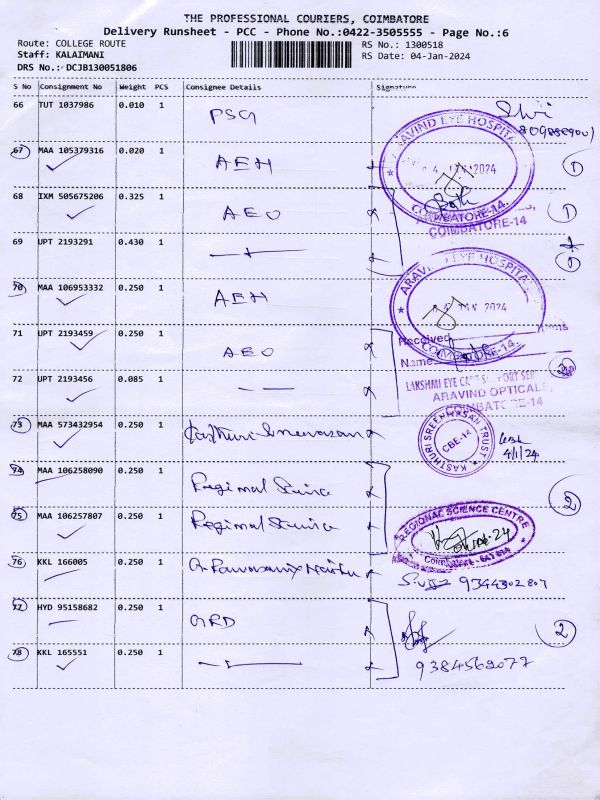 THE PROFESSIONAL COURIERS, COIMBATORE
Delivery Runsheet - PCC - Phone No.:0422-3505555 - Page No.:6
Route: COLLEGE ROUTE
Staff: KALAIMANI
DRS No.: DCJB130051806
RS No.: 1300518
RS Date: 04-Jan-2024
S No Consignment No Weight PCS Consignee Details Signature
66 TUT 1037986 0.010 1 PSG
67 MAA 105379316 0.020 1 AEH
ARAVIND EYE HOSPITAL
2024
COIMBATORE-14.
1
68 IXM 505675206 0.325 1 AEO
COIMBATORE-14
1
69 UPT 2193291 0.430 1
70 MAA 106953332 0.250 1 AEH
ARAVIND EYE HOSPITAL
2024
COIMBATORE-14.
71 UPT 2193459 0.250 1 AEO
Received
Name
72 UPT 2193456 0.085 1
LAKSHMI EYE CARE SUPPORT SER
ARAVIND OPTICALS
COIMBATORE-14
73 MAA 573432954 0.250 1 Kasthuri Sreenivasan
KASTHURI SREENIVASAN TRUST
CBE-14
4/1/24
74 MAA 106258090 0.250 1 Regional Science
2
75 MAA 106257807 0.250 1 Regional Science
REGIONAL SCIENCE CENTRE
Coimbatore - 641 014
76 KKL 166005 0.250 1
9344302807
77 HYD 95158682 0.250 1 GRD
2
78 KKL 165551 0.250 1
9384562077